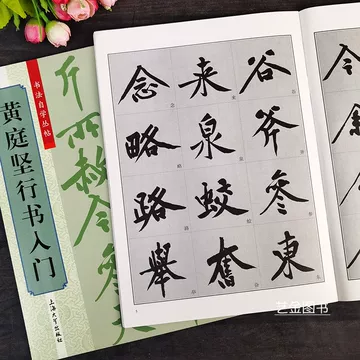 书法自学丛帖
黄庭坚行书入门
上海大学出版社
谷斧參東
来泉蛟奮
念略路舉
艺金图书